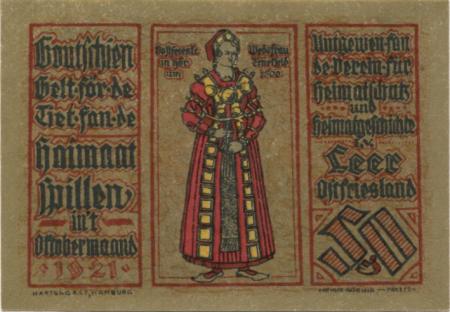 Goutschien
Gelt-för-de
Tiet-fan-de
Haimaat
spillen
in't
Oktobermaand
1921
Ostfreeske
in hör
um
1500
Uutgewen-fan
de-Verein-für
Heimatschutz
und
Heimatgeschichte
in
Leer
Ostfriesland
50
HARTUNG & Co, HAMBURG